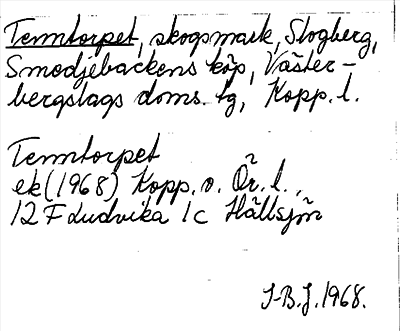 Tenntorpet, skogsmark, Slogberg,
Smedjebackens köp, Väster-
bergslags doms. tg, Kopp. l.
Tenntorpet
ek (1968) Kopp. o. Ör. l.,
12 F Ludvika 1 c Hällsjön
I-B.J. 1968.